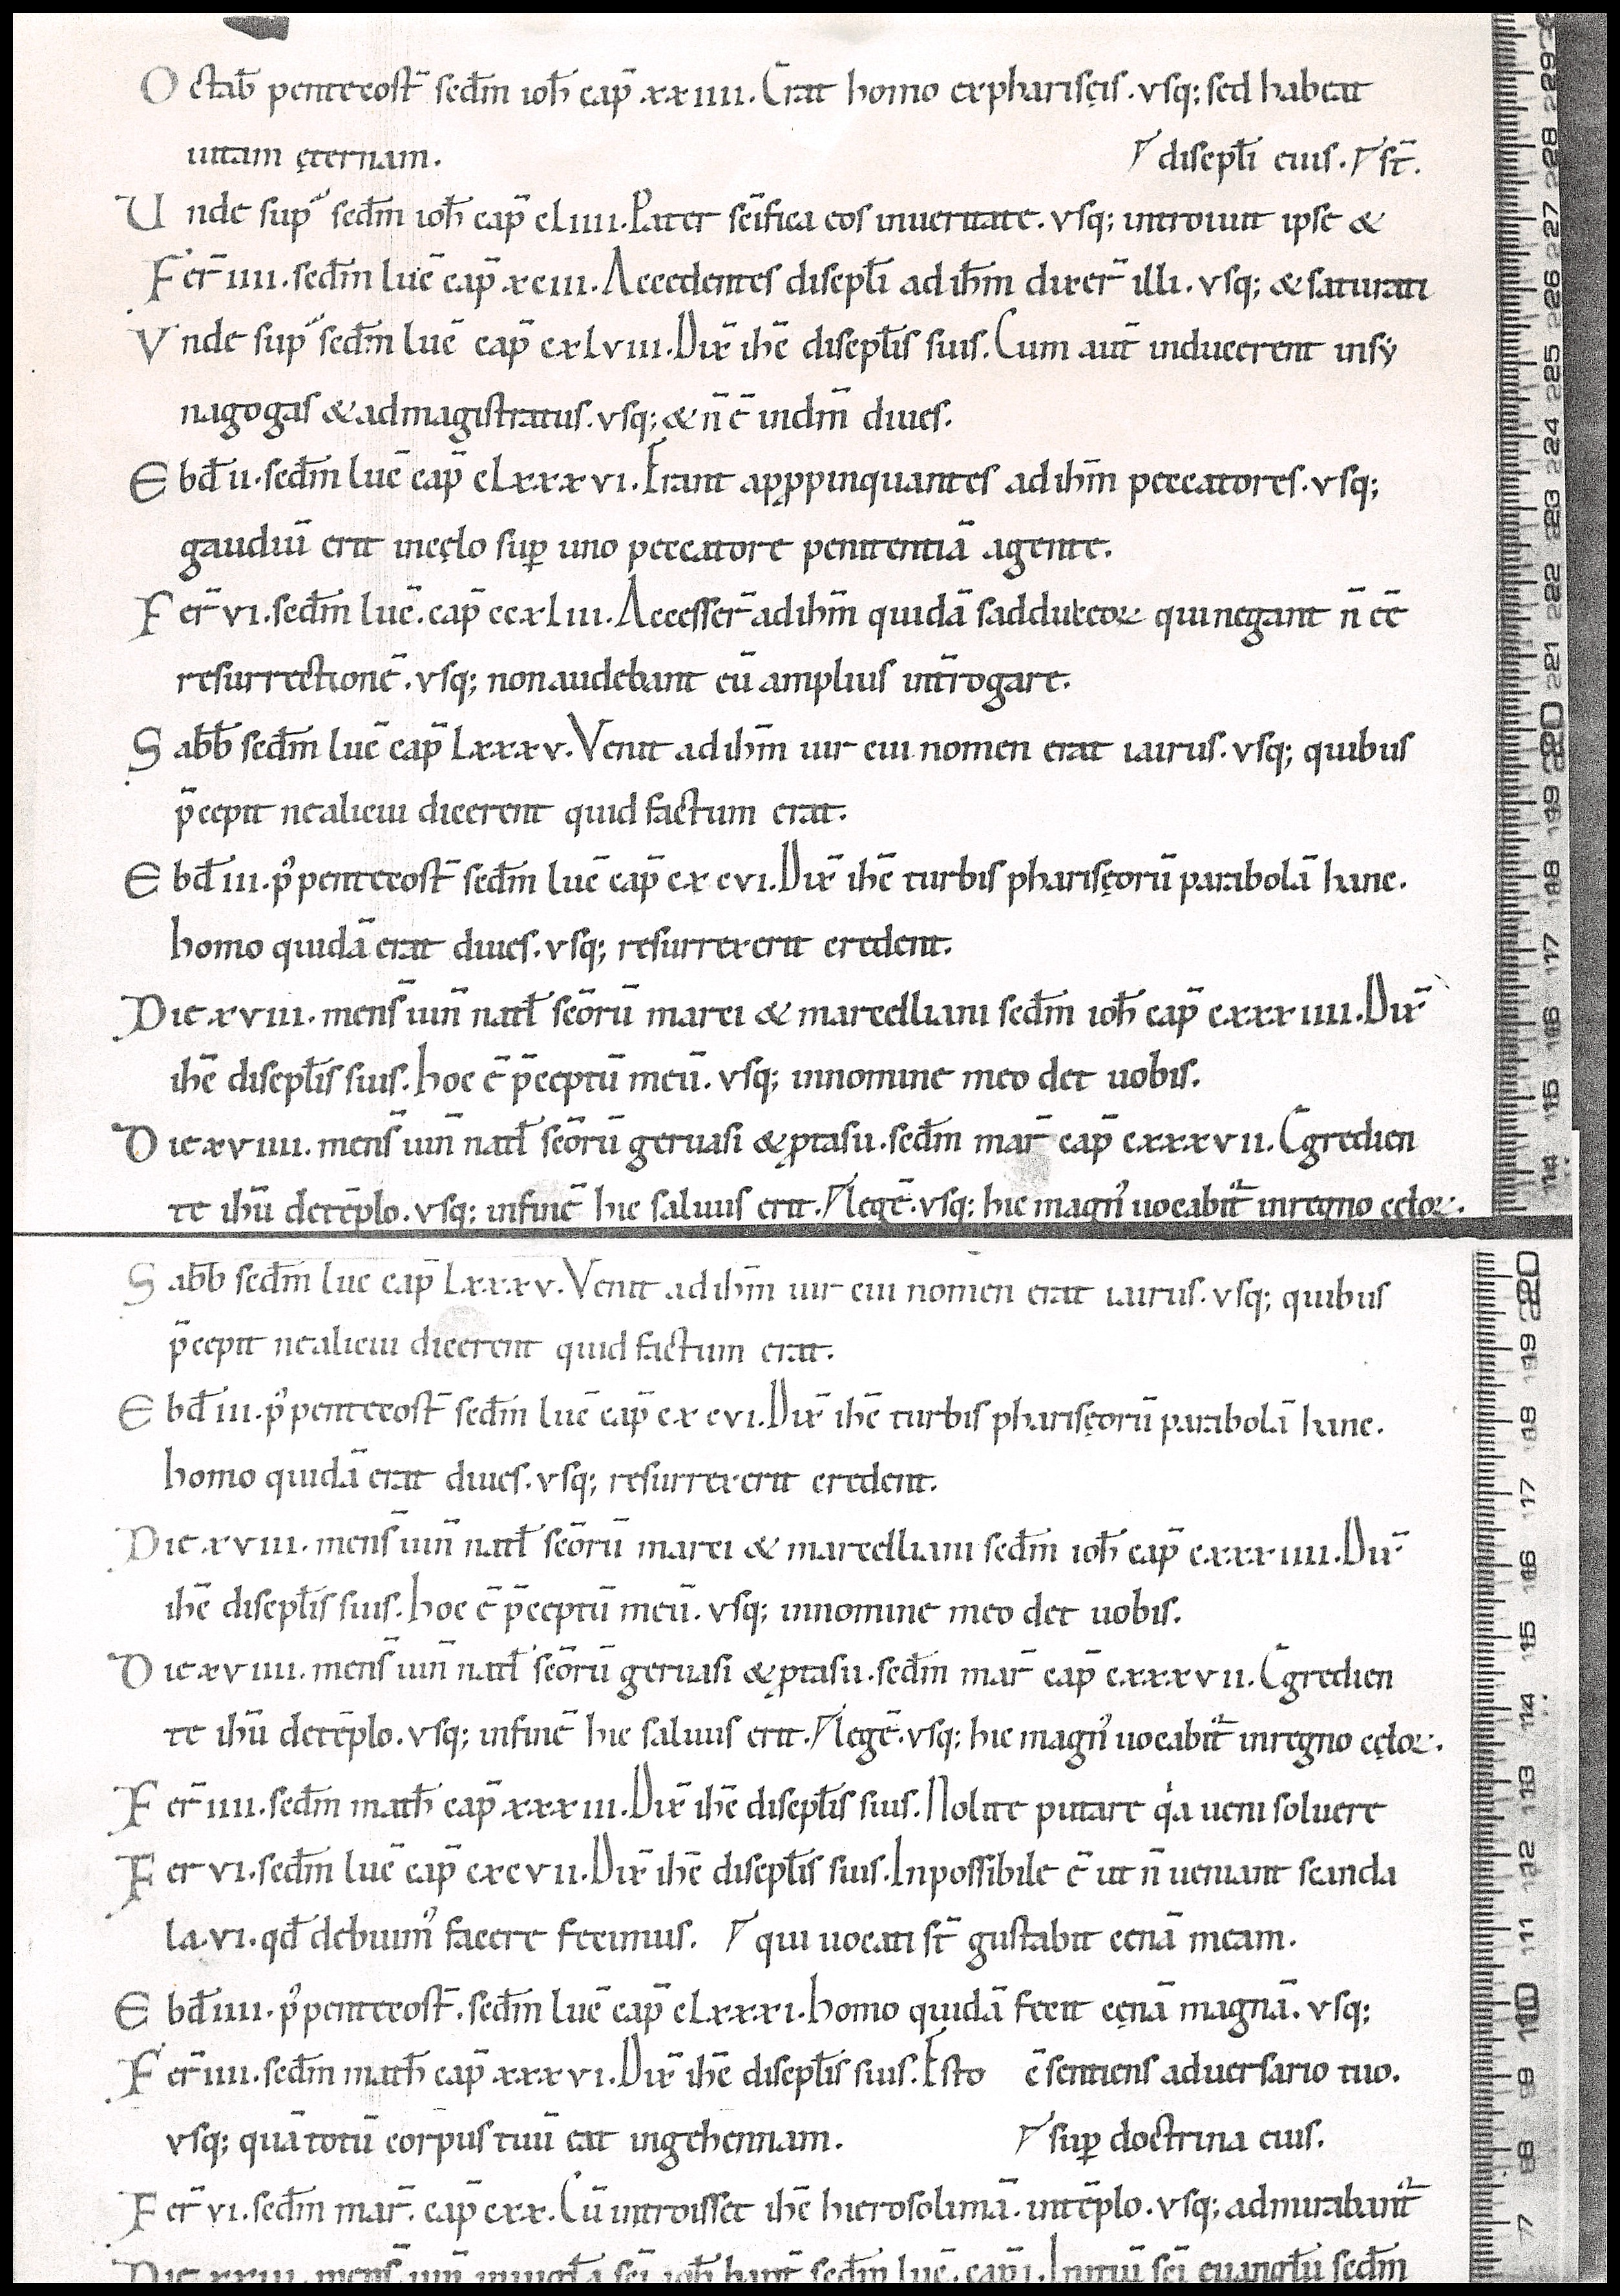 Octab̄ pentecost̄ sec̄dm ioh̄ cap̄ .xxiiii. Erat homo expharisęis . vsq; sed habeat
uitam ęternam. disc̄pli eius. st̄.
Unde sup̄ sec̄dm ioh̄ cap̄ cLiiii. Pater sc̄ifica eos inueritate . vsq; introiuit ipse &
Fer̄ iiii . sec̄dm luc̄ cap̄ .xciii. Accedentes disc̄pli ad ih̄m dixer̄ illi . vsq; & saturati
Vnde sup̄ sec̄dm luc̄ cap̄ cxLviii. Dix̄ ih̄c disc̄plis suis. Cum aut̄ inducerent insẏ
nagogas & admagistratus . vsq; & n̄ ē indm̄ diues.
Ebd̄ ii . sec̄dm luc̄ cap̄ cLxxxvi. Erant apꝓpinquantes ad ih̄m peccatores . vsq;
gaudiū erit incęlo suꝑ uno peccatore penitentiā agente.
Fer̄ vi . sec̄dm luc̄ . cap̄ ccxLiii. Accesser̄ ad ih̄m quidā sadduceoꝝ qui negant n̄ eē
resurrectionē . vsq; non audebant eū amplius int̄rogare.
Sabb̄ sec̄dm luc̄ cap̄ Lxxxv. Venit ad ih̄m uir cui nomen erat iairus . vsq; quibus
p̄cepit ne alicui dicerent quid factum erat.
Ebd̄ iii . p᷒ pentecost̄ sec̄dm luc̄ cap̄ cxcvi. Dix̄ ih̄c turbis pharisęorū parabolā hanc.
homo quidā erat diues . vsq; resurrexerit credent.
Die .xviii. mens̄ iun̄ natl̄ sc̄orū marci & marcelliani sec̄dm ioh̄ cap̄ cxxxiiii. Dix̄
ih̄c disc̄plis suis. hoc ē p̄ceptū meū . vsq; innomine meo det uobis.
Die .xviiii. mens̄ iun̄ natl̄ sc̄orū geruasi & ꝓtasii . sec̄dm mar̄ cap̄ cxxxvii. Egredien
te ih̄u detēplo . vsq; infinē hic saluus erit. legē . vsq; hic magn᷒ uocabit᷑ inregno cęloꝝ.
Sabb̄ sec̄dm luc cap̄ Lxxxv. Venit ad ih̄m uir cui nomen erat iairus . vsq; quibus
p̄cepit ne alicui dicerent quid factum erat.
Ebd̄ iii . p᷒ pentecost̄ sec̄dm luc̄ cap̄ cxcvi. Dix̄ ih̄c turbis pharisęorū parabolā hanc.
homo quidā erat diues . vsq; resurrexerit credent.
Die .xviii. mens̄ iun̄ natl̄ sc̄orū marci & marcelliani sec̄dm ioh̄ cap̄ cxxxiiii. Dix̄
ih̄c disc̄plis suis. hoc ē p̄ceptū meū . vsq; innomine meo det uobis.
Die .xviiii. mens̄ iun̄ natl̄ sc̄orū geruasi & ꝓtasii . sec̄dm mar̄ cap̄ cxxxvii. Egredien
te ih̄u detēplo . vsq; infinē hic saluus erit. legē . vsq; hic magn᷒ uocabit᷑ inregno cęloꝝ.
Fer̄ iiii . sec̄dm math̄ cap̄ .xxxiii. Dix̄ ih̄c disc̄plis suis. Nolite putare qͥa ueni soluere
Fer vi . sec̄dm luc̄ cap̄ cxcvii. Dix̄ ih̄c disc̄plis suis. Inpossibile ē ut n̄ ueniant scanda
la . vi . qd̄ debuim᷒ facere fecimus. qui uocati st̄ gustabit cenā meam.
Ebd̄ iiii . p᷒ pentecost̄ . sec̄dm luc̄ cap̄ cLxxxi. homo quidā fecit cęnā magnā . vsq;
Fer̄ iiii . sec̄dm math̄ cap̄ .xxxvi. Dix̄ ih̄c disc̄plis suis. Esto c̄sentiens aduersario tuo.
vsq; quā totū corpus tuū eat ingehennam. suꝑ doctrina eius.
Fer̄ vi . sec̄dm mar̄ . cap̄ cxx. Cū introisset ih̄c hierosolimā . intēplo . vsq; admirabant᷑
Die .xxiii. mens̄ iun̄ sc̄i ioh̄ bapt̄ sec̄dm luc̄ . cap̄ i. Initiū sc̄i euangl̄ii sec̄dm
29 28 27 26 25 24 23 22 21 20 19 18 17 16 15 14
20 19 18 17 16 15 14 13 12 11 10 9 8 7